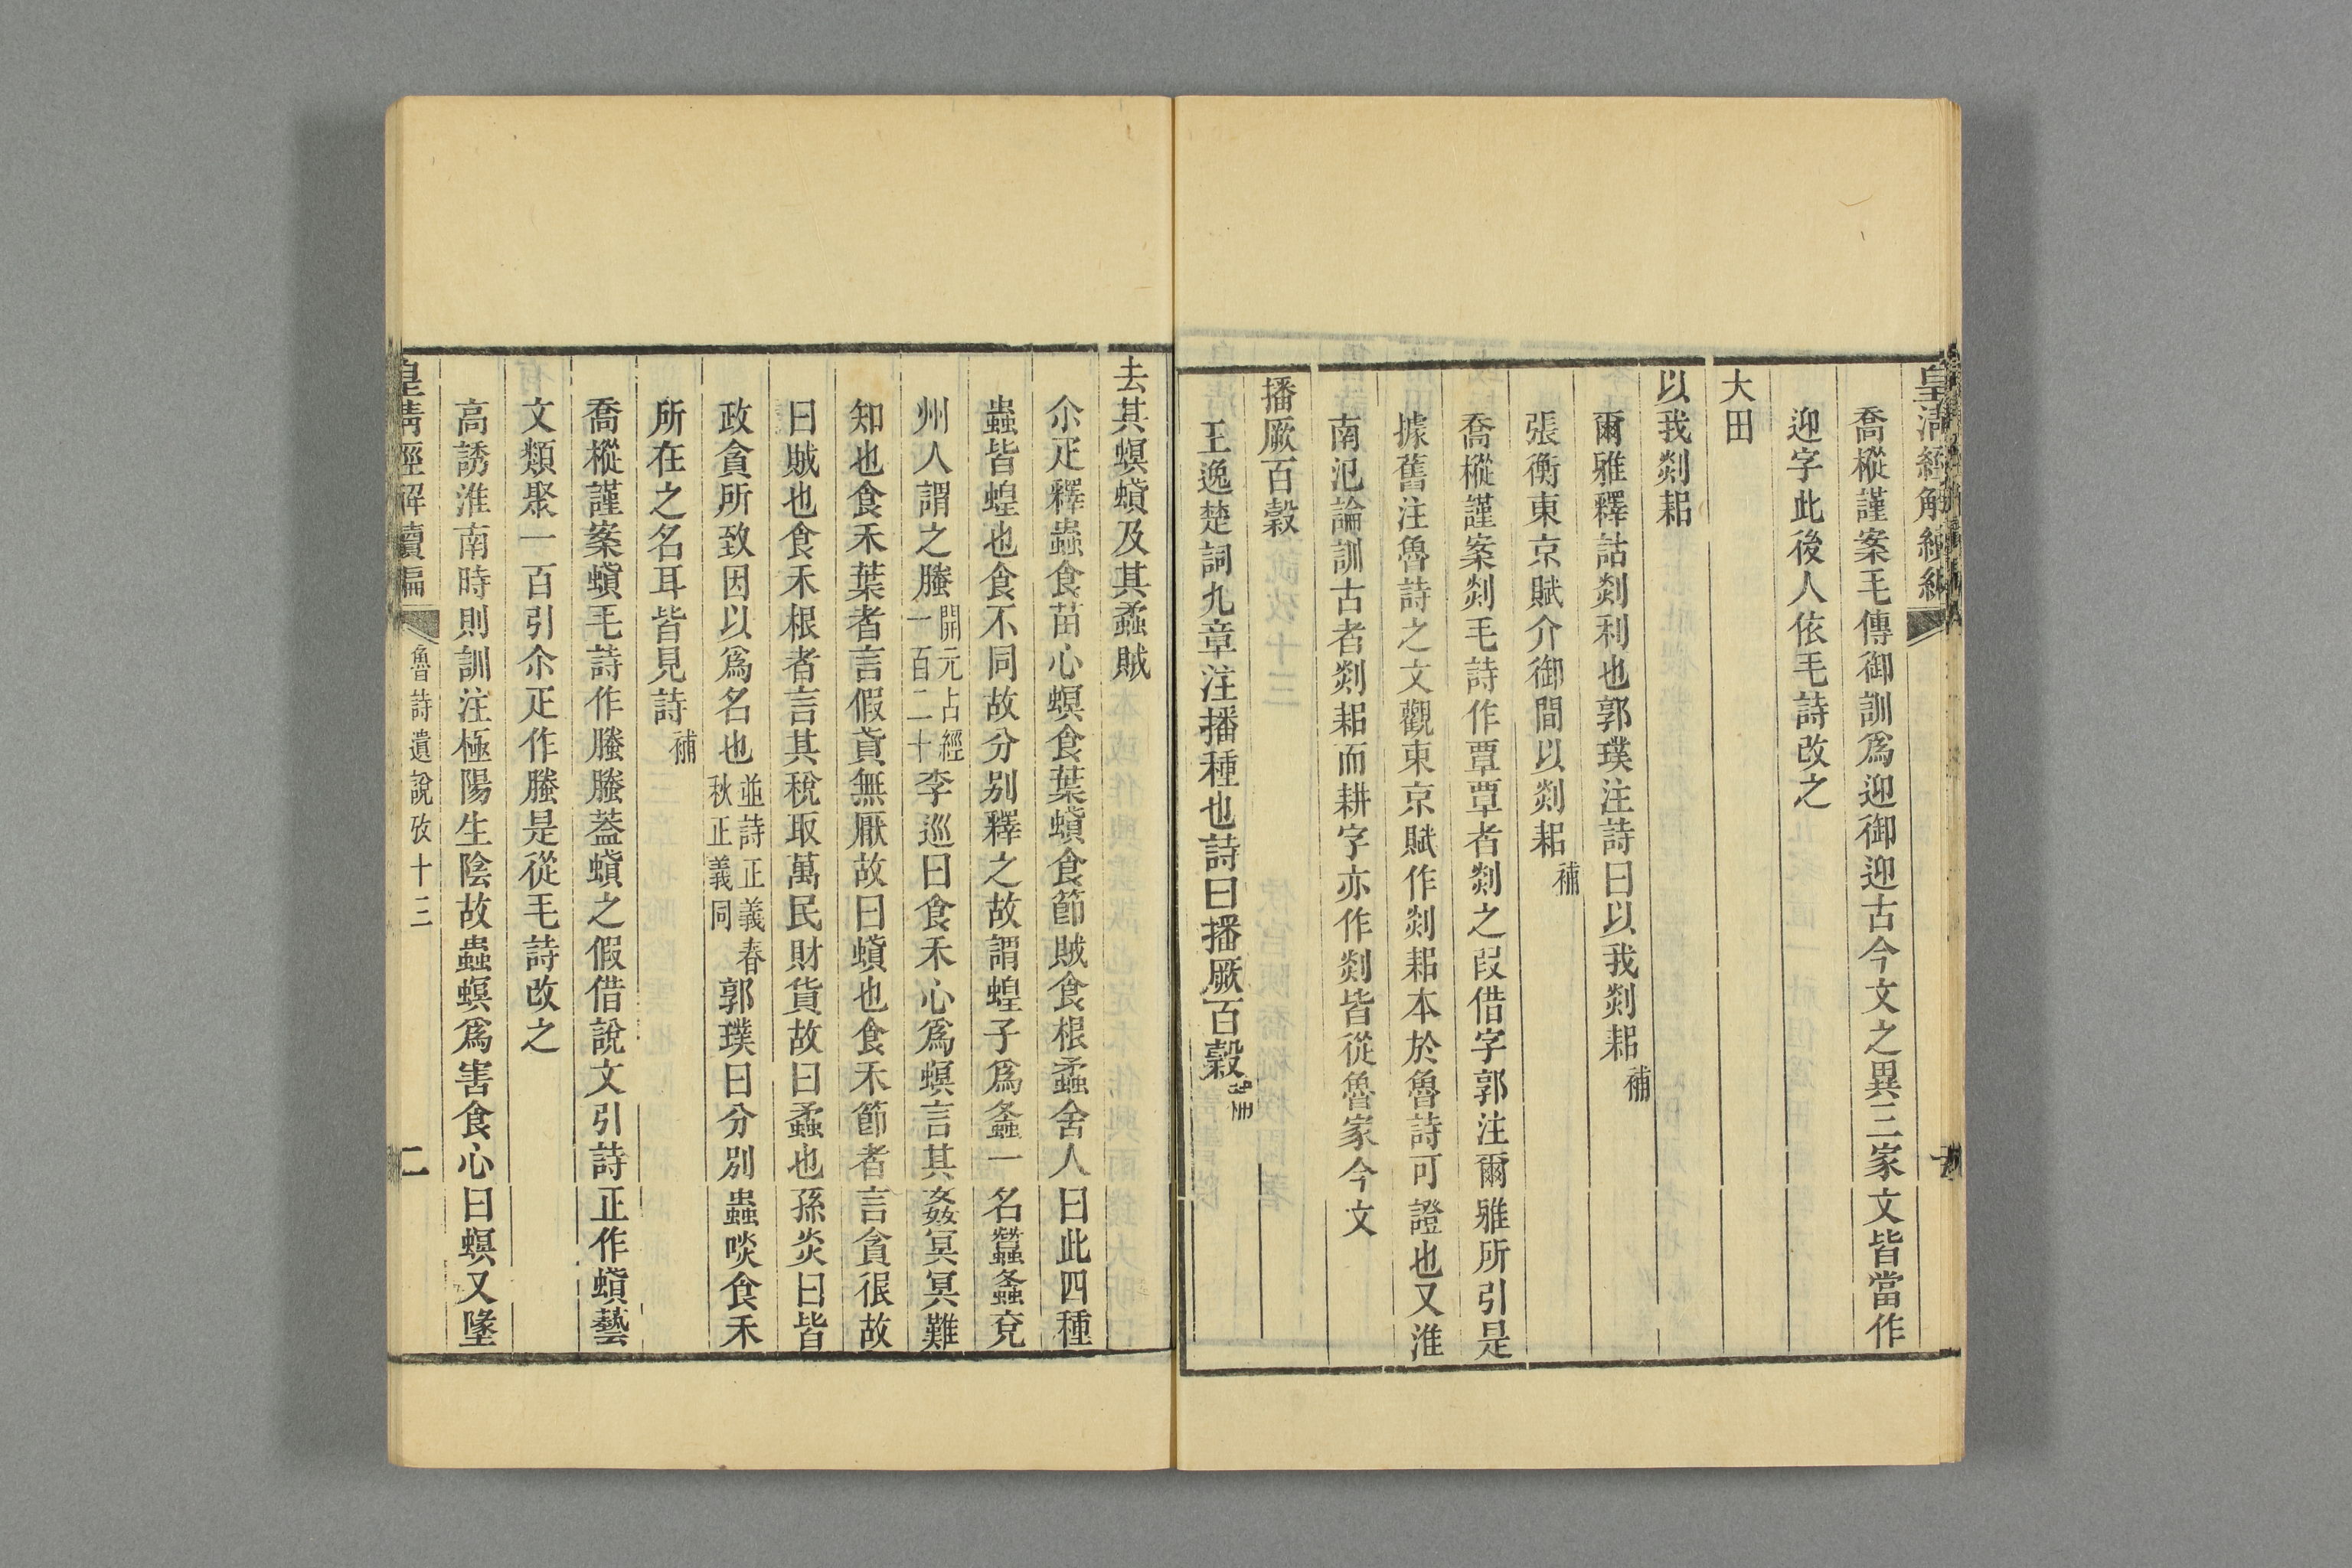 皇清經解續編
喬樅謹案毛傳御訓爲迎御迎古今文之異三家文皆當作
迎字此後人依毛詩改之
大田
以我剡耜
爾雅釋詁剡利也郭璞注詩曰以我剡耜補
張衡東京賦介御間以剡耜補
喬樅謹案剡毛詩作覃覃者剡之叚借字郭注爾雅所引是
據舊注魯詩之文觀東京賦作剡耜本於魯詩可證也又淮
南氾論訓古者剡耜而耕字亦作剡皆從魯家今文
播厥百穀
王逸楚詞九章注播種也詩曰播厥百穀
去其螟螣及其蟊賊
尒疋釋蟲食苗心螟食葉蟘食節賊食根蟊舍人曰此四種
蟲皆蝗也食不同故分别釋之故謂蝗子爲螽一名蠶螽兗
州人謂之螣開元占經一百二十李巡曰食禾心爲螟言其姦冥冥難
知也食禾葉者言假貣無厭故曰蟘也食禾節者言貪很故
曰賊也食禾根者言其稅取萬民財貨故曰蟊也孫炎曰皆
政貪所致因以爲名也並詩正義春秋正義同郭璞曰分別蟲啖食禾
所在之名耳皆見詩補
喬樅謹案蟘毛詩作螣螣蓋蟘之假借說文引詩正作蟘藝
文類聚一百引尒疋作螣是從毛詩改之
高誘淮南時則訓注極陽生陰故蟲螟爲害食心曰螟又墬
皇清經解續編
魯詩遺說攷十三
二